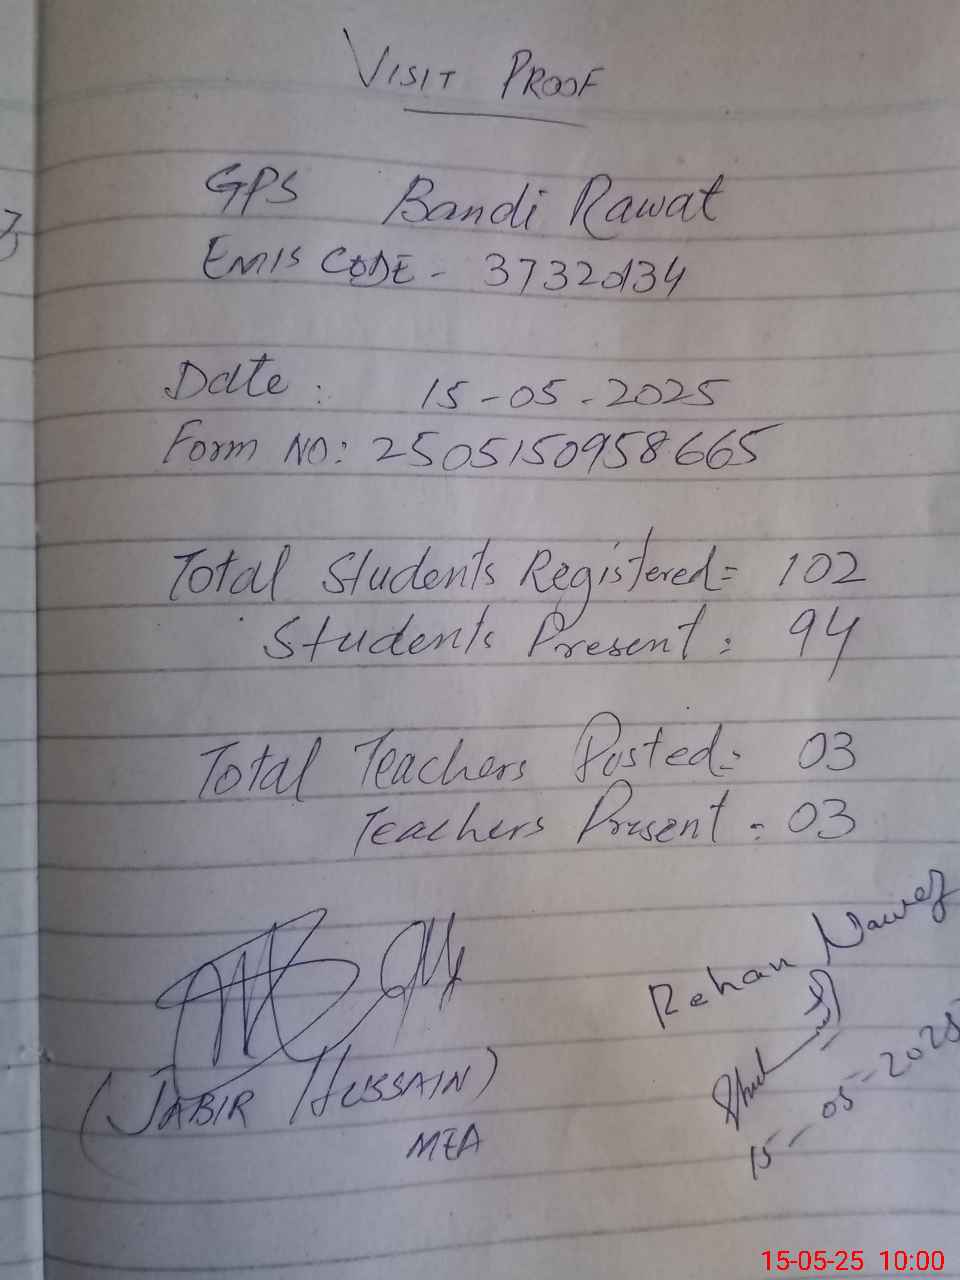 VISIT PROOF
GPS Bandi Rawat
EMIS CODE - 37320134
Date : 15-05-2025
Form NO: 2505150958665
Total Students Registered = 102
Students Present : 94
Total Teachers Posted = 03
Teachers Present = 03
(JABIR HUSSAIN)
MEA
Rehan Nawaz
15-05-2025
15-05-25 10:00